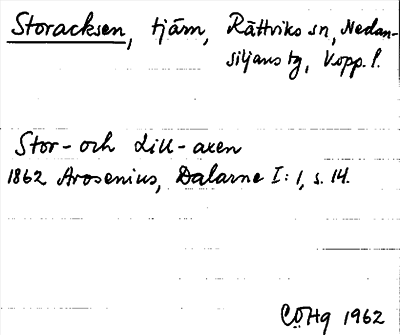 Storacksen, tjärn, Rättviks sn, Nedan-
siljans tg, Kopp. l.
Stor- och Lill-axen
1862 Arosenius, Dalarne I:1, s. 14.
CÖHg 1962